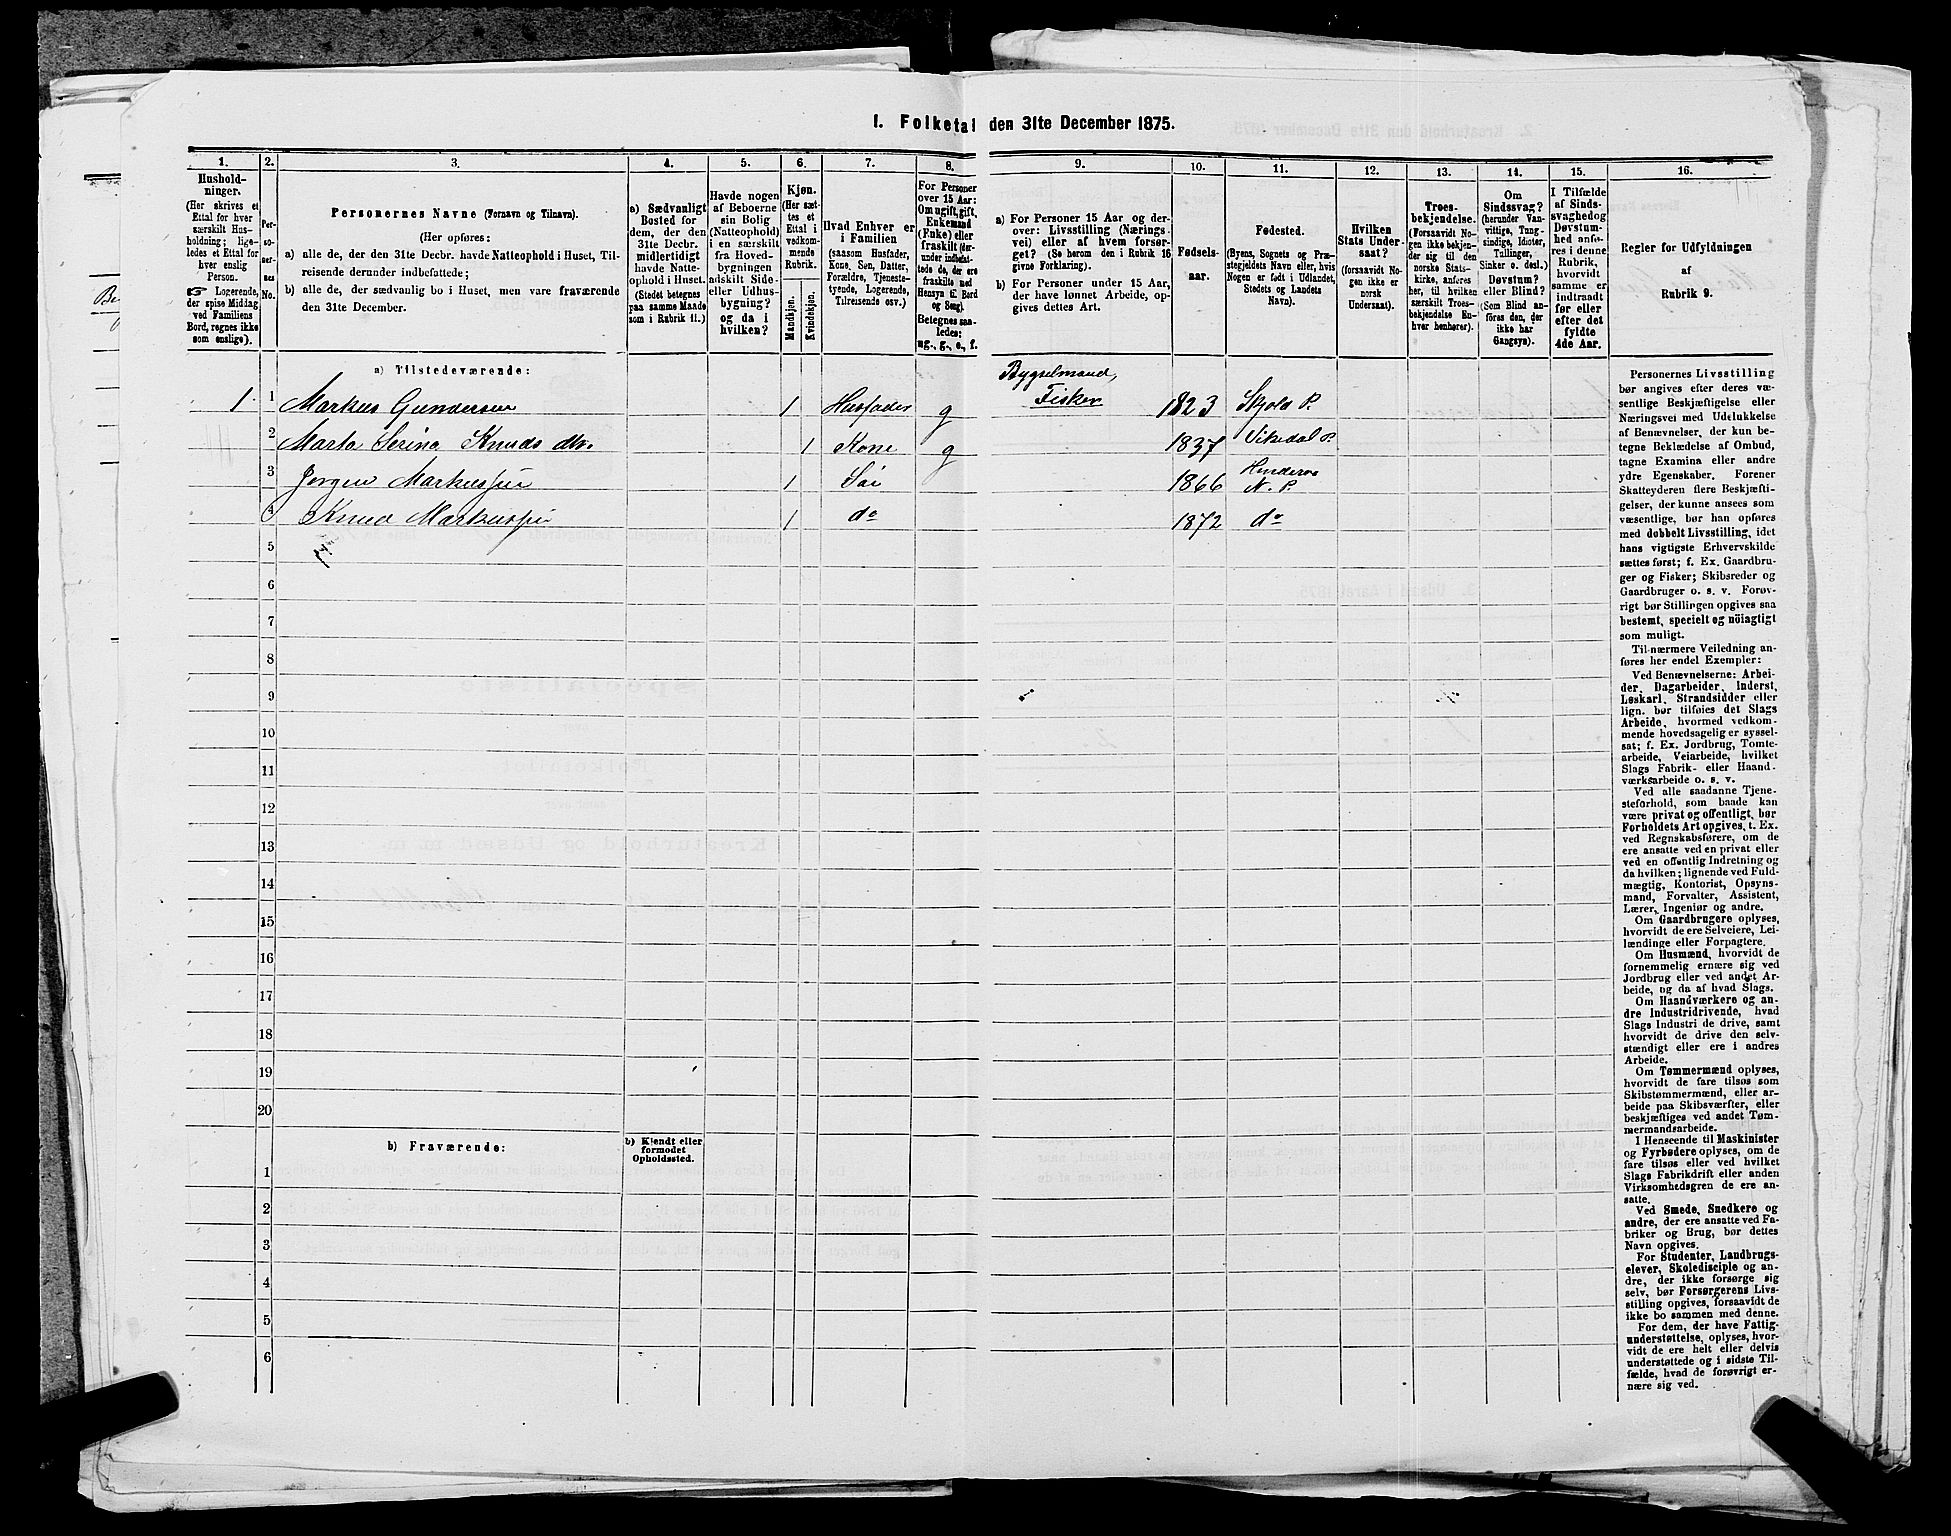 1. Folketal den 31te December 1875.
1.
Hushold-
ninger.
(Her skrives et
Ettal for hver
særskilt Hus-
holdning; lige-
ledes et Ettal for
hver enslig
Person.
☞ Logerende,
der spise Middag
ved Familiens
Bord, regnes ikke
som enslige).
2.
Per-
so-
ner-
nes
No.
3.
Personernes Navne (Fornavn og Tilnavn).
(Her opføres:
a) alle de, der den 31te Decbr. havde Natteophold i Huset, Til-
reisende derunder indbefattede;
b) alle de, der sædvanlig bo i Huset, men vare fraværende
den 31te December.
4.
a) Sædvanligt
Bosted for
dem, der den
31te Decbr.
midlertidigt
havde Natte-
ophold i Huset.
(Stedet betegnes
paa samme Maade
som i Rubrik 11.)
5.
Havde nogen
af Beboerne
sin Bolig
(Natteophold)
i en særskilt
fra Hoved-
bygningen
adskilt Side-
eller Udhus-
bygning?
og da i
hvilken?
6.
Kjøn.
(Her sæt-
tes et
Ettal i
vedkom-
mende
Rubrik.
Mandkjøn.
Kvindekjøn.
7.
Hvad Enhver er
i Familien
(saasom Husfader,
Kone, Søn, Datter,
Forældre, Tjeneste-
tyende, Logerende,
Tilreisende osv.)
8.
For Personer
over 15 Aar:
Om ugift, gift,
Enkemand
(Enke) eller
fraskilt (der-
under indbefat-
tede de, der ere
fraskilte med
Hensyn til Bord
og Seng).
Betegnes saa-
ledes:
ug., g., e., f.
9.
a) For Personer 15 Aar og der-
over: Livsstilling (Nærings-
vei) eller af hvem forsør-
get? (Se herom den i Rubrik 16
givne Forklaring).
b) For Personer under 15 Aar,
der have lønnet Arbeide, op-
gives dettes Art.
10.
Fødsels-
aar.
11.
Fødested.
(Byens, Sognets og Præ-
stegjeldets Navn eller, hvis
Nogen er født i Udlandet,
Stedets og Landets
Navn).
12.
Hvilken
Stats Under-
saat?
(forsaavidt No-
gen ikke er
norsk
Undersaat).
13.
Troes-
bekjendelse.
(Forsaavidt No-
gen ikke bekjen-
der sig til den
norske Stats-
kirke, anføres
her, til hvilken
særskilt Troes-
bekjendelse En-
hver henhører).
14.
Om
Sindssvag?
(herunder Van-
vittige, Tung-
sindige, Idioter,
Tallinger,
Sinker o. desl.)
Døvstum?
eller Blind?
(Som Blind an-
føres den, der
ikke har
Gangsyn).
15.
I Tilfælde
af Sinds-
svaghed og
Døvstum-
hed anfø-
res i denne
Rubrik,
hvorvidt
samme er
indtraadt
før eller
efter det
fyldte
4de Aar.
16.
Regler for Udfyldningen
af
Rubrik 9.
a) Tilstedeværende:
1 1 Markus Gundersen 1 Husfader g Bygselmand, Fisker 1823 Skjold P.
2 Marta Serina Knuds dtr. 1 Kone g 1837 Vikedal P.
3 Jørgen Markussen 1 Søn 1866 N. P.
4 Knud Markussen 1 do 1872 do
5
6
7
8
9
10
11
12
13
14
15
16
17
18
19
20
b) Fraværende:
b) Kjendt eller
formodet
Opholdssted.
1
2
3
4
5
6
Personernes Livsstilling
bør angives efter deres væ-
sentlige Beskjæftigelse eller
Næringsvei med Udelukkelse
af Benævnelser, der kun be-
tegne Beklædelse af Ombud,
tagne Examina eller andre
ydre Egenskaber. Forener
Skatteyderen flere Beskjæfti-
gelser, der kunne ansees som
væsentlige, bør han opføres
med dobbelt Livsstilling, idet
hans vigtigste Erhvervskilde
sættes først; f. Ex. Gaardbru-
ger og Fisker; Skibsreder og
Gaardbruger o. s. v. Forøv-
rigt bør Stillingen opgives saa
bestemt, specielt og nöiagtigt
som muligt.
Til nærmere Veiledning an-
føres her endel Exempler:
Ved Benævnelserne: Arbei-
der, Dagarbeider, Inderst,
Løskarl, Strandsidder eller
lign. bør tilføies det Slags
Arbeide, hvormed vedkom-
mende hovedsagelig er syssel-
sat; f. Ex. Jordbrug, Tomte-
arbeide, Veiarbeide, hvilket
Slags Fabrik- eller Haand-
værksarbeide o. s. v.
Ved alle saadanne Tjene-
steforhold, som baade kan
være privat og offentligt, bør
Forholdets Art opgives, t. Ex.
ved Regnskabsførere, om de
ere ansatte ved en privat eller
ved en offentlig Indretning og
da hvilken; lignende ved Fuld-
mægtig, Kontorist, Opsyns-
mand, Forvalter, Assistent,
Lærer, Ingeniør og andre.
Om Gaardbrugere oplyses,
hvorvidt de ere Selveiere, Lei-
lændinge eller Forpagtere.
Om Husmænd, hvorvidt de
fornemmelig ernære sig ved
Jordbrug eller ved andet Ar-
beide, og da af hvad Slags.
Om Haandværkere og an-
dre Industridrivende, hvad
Slags Industri de drive, samt
hvorvidt de drive den selv-
stændigt eller ere i andres
Arbeide.
Om Tømmermænd oplyses,
hvorvidt de fare tilsøs som
Skibstømmermænd, eller ar-
beide paa Skibsværfter, eller
beskjæftiges ved andet Tøm-
mermandsarbeide.
I Henseende til Maskinister
og Fyrbødere oplyses, om de
fare tilsøs eller ved hvilket
Slags Fabrikdrift eller anden
Virksomhedsgren de ere an-
satte.
Ved Smede, Snedkere og
andre, der ere ansatte ved Fa-
briker og Brug, bør dettes
Navn opgives.
For Studenter, Landbrugs-
elever, Skoledisciple og an-
dre, der ikke forsørge sig
selv, bør Forsørgerens Livs-
stilling opgives, forsaavidt de
ikke bo sammen med denne.
For dem, der have Fattig-
understøttelse, oplyses, hvor-
vidt de ere helt eller delvis
understøttede og i sidste Til-
fælde, hvad de forøvrigt er-
nære sig ved.